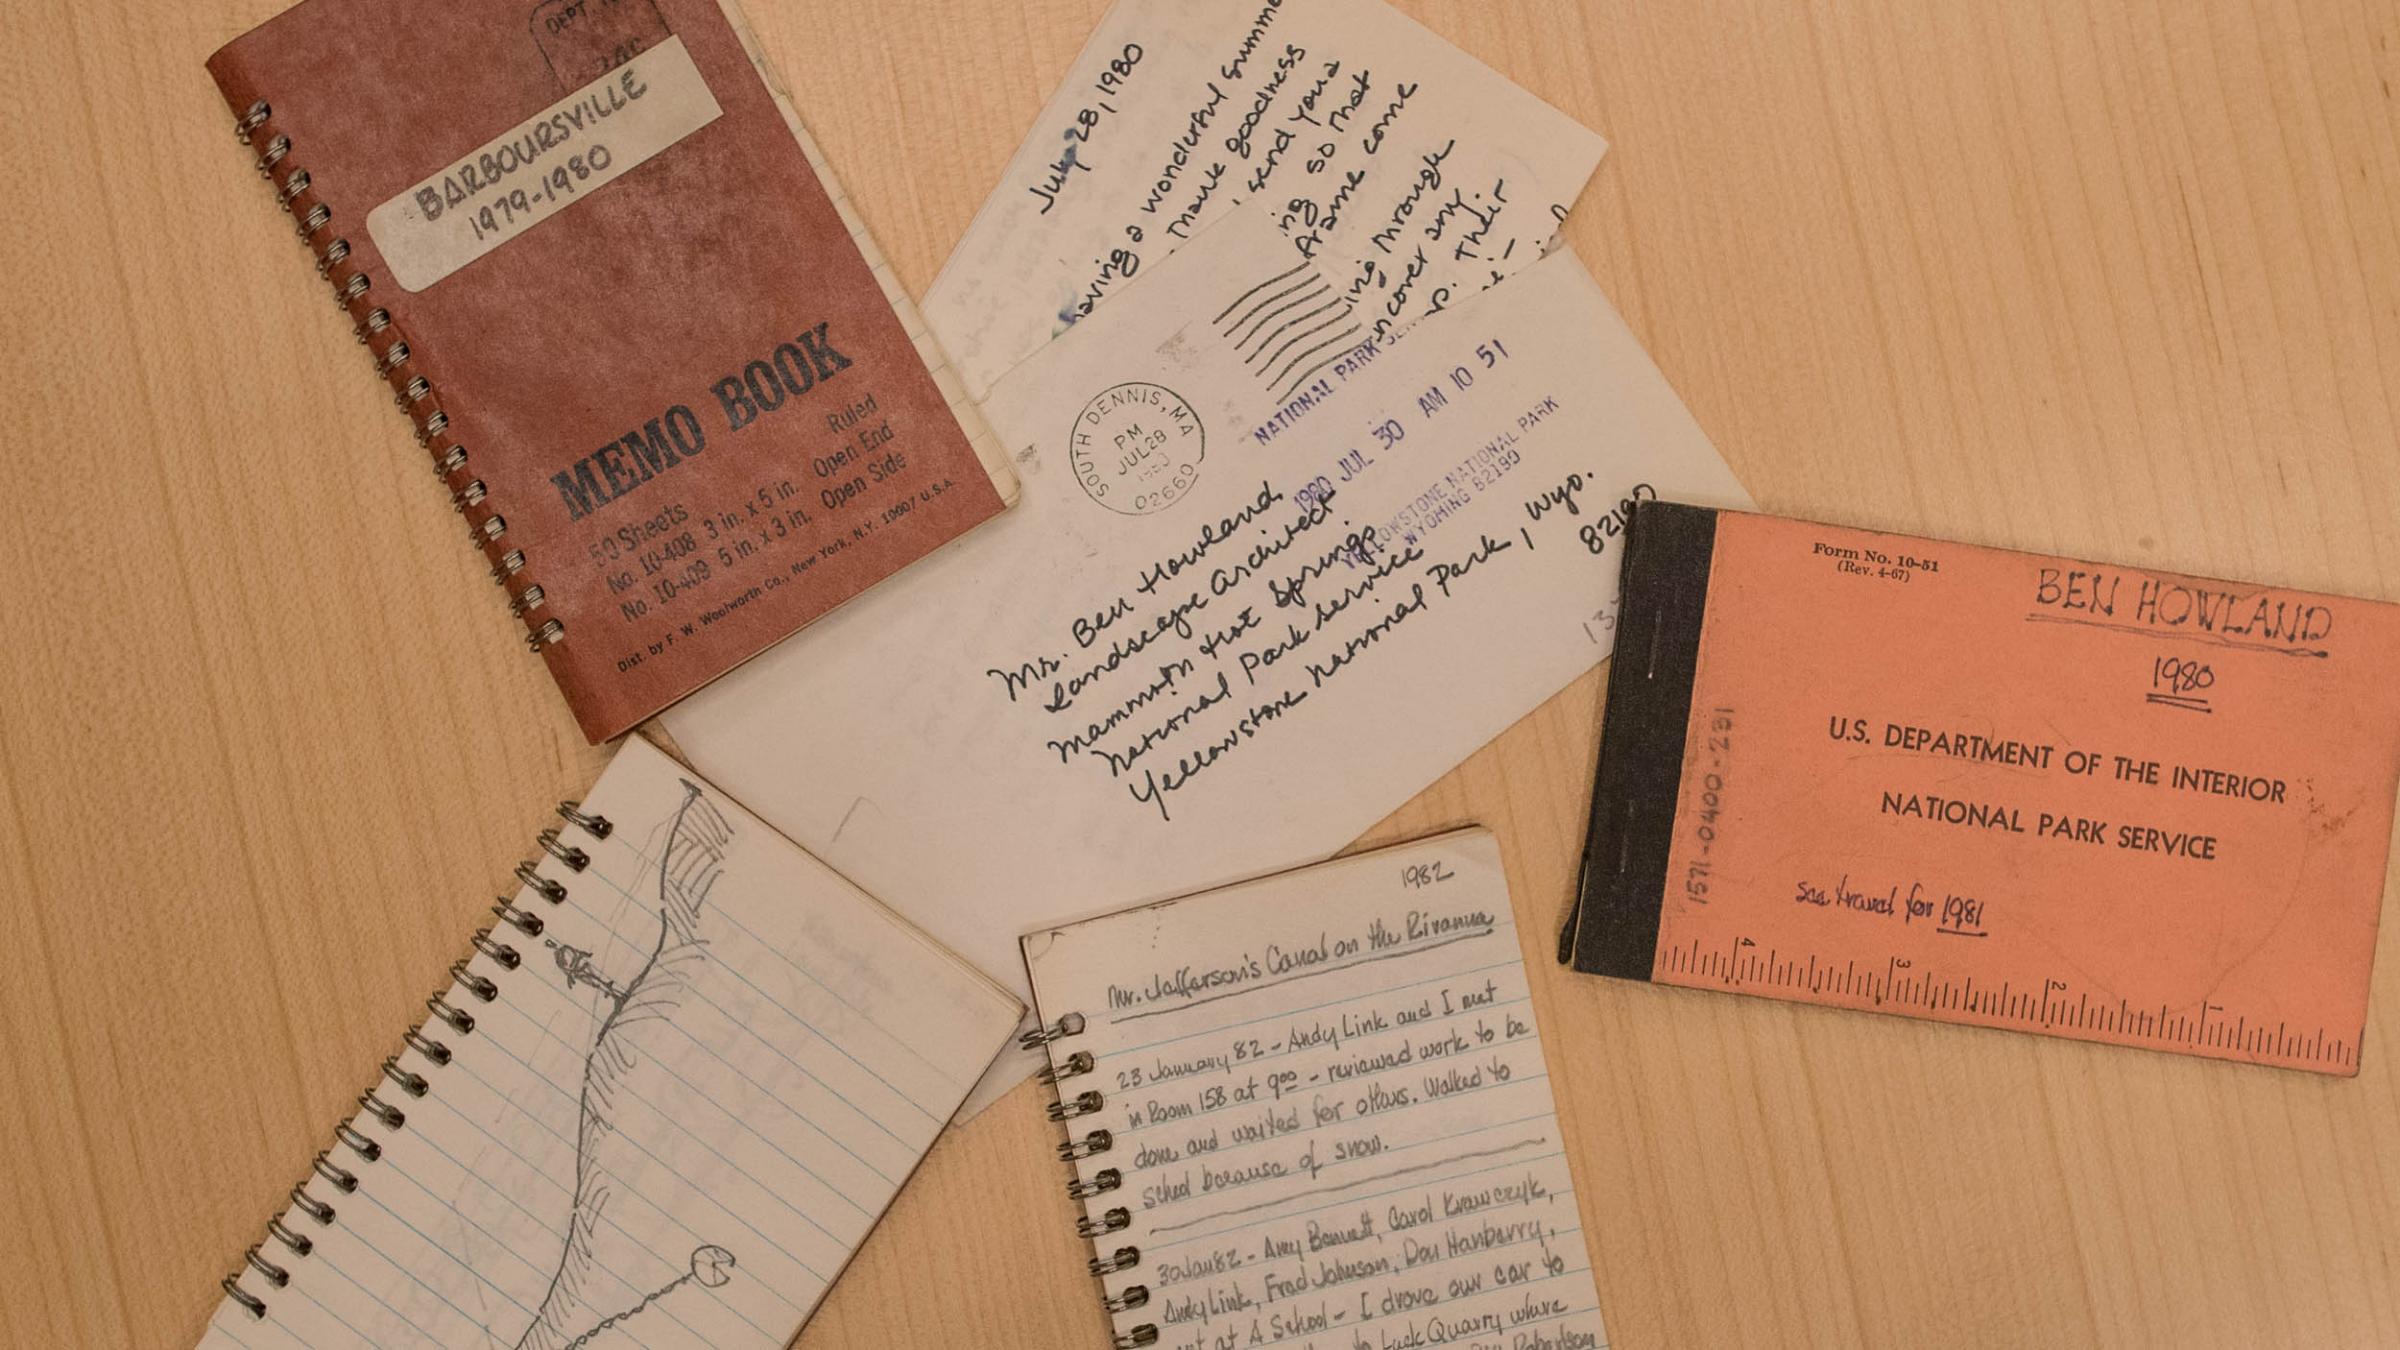 DEPT.
BARBOURSVILLE
1979-1980
MEMO BOOK
50 Sheets
Ruled
No. 10-408 3 in. x 5 in. Open End
No. 10-409 5 in. x 3 in. Open Side
Dist. by F. W. Woolworth Co., New York, N.Y. 10007 U.S.A.
July 28, 1980
having a wonderful summe
Thank goodness
send you a
ing so that
frame come
ing through
ncover any
p. Their
SOUTH DENNIS, MA
PM
JUL 28
1980
02660
NATIONAL PARK SE
1980 JUL 30 AM 10 51
YELLOWSTONE NATIONAL PARK
WYOMING 82190
Mr. Ben Howland
Landscape Architect
Mammoth Hot Springs
National Park Service
Yellowstone National Park, Wyo.
82190
Form No. 10-51
(Rev. 4-67)
BEN HOWLAND
1980
U.S. DEPARTMENT OF THE INTERIOR
NATIONAL PARK SERVICE
see travel for 1981
4 3 2 1
1982
Mr. Jefferson's Canal on the Rivanna
23 January 82 - Andy Link and I met
in Room 158 at 9:00 - reviewed work to be
done and waited for others. Walked to
sched because of snow.
30 Jan 82 - Amy Bennett, Carol Krawczyk,
Andy Link, Fred Johnson, Don Hanberry,
at A School - I drove our car to
to Luck Quarry where
Robertson